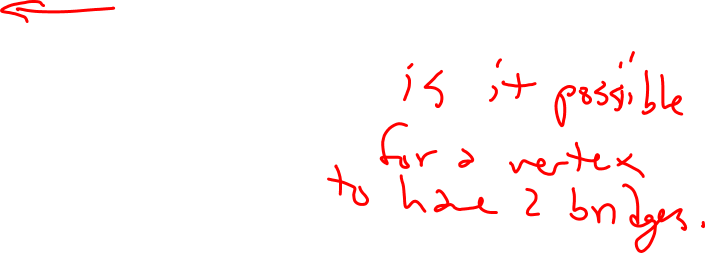 is it possible
for a vertex
to have 2 bridges.